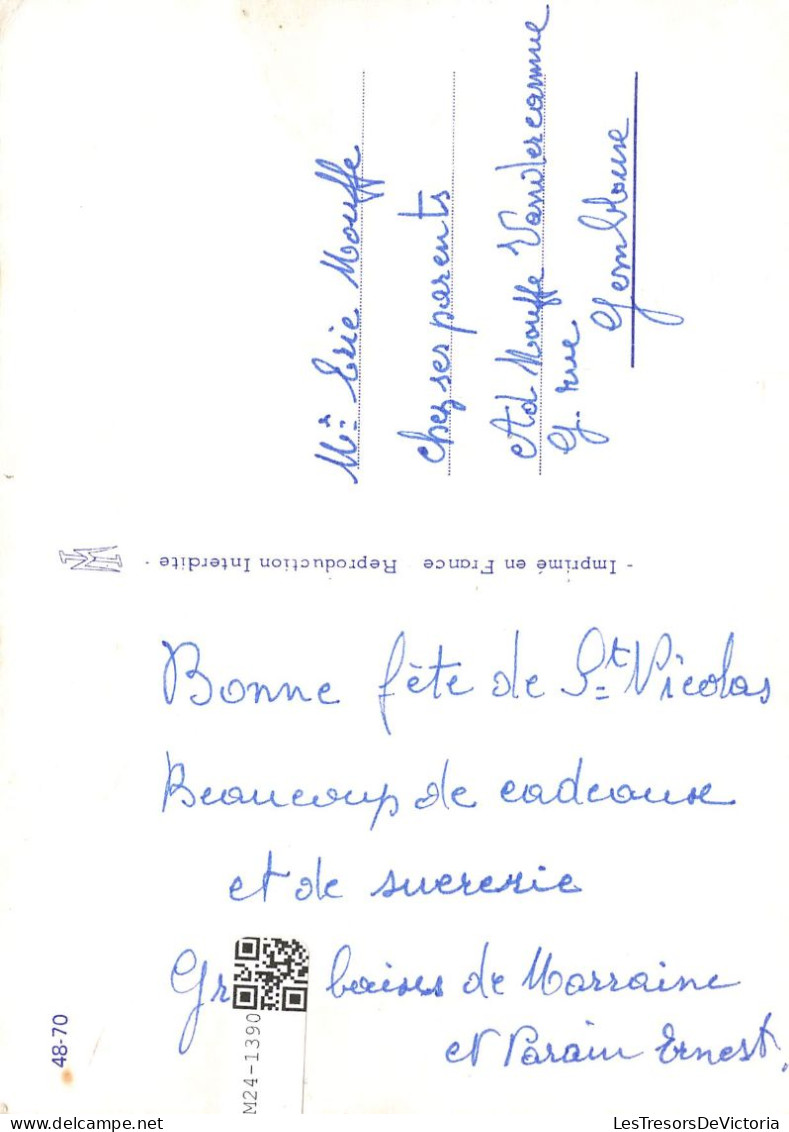 Mr. Eric Mouffe
chez ses parents
Ad Mouffe Vandercamme
G. rue
Gembloux
- Imprimé en France - Reproduction Interdite -
Bonne fête de St Nicolas
Beaucoup de cadeaux
et de sucrerie
Gr baises de Marraine
et Parain Ernest.
48-70
M24-1390
LesTresorsDeVictoria.com